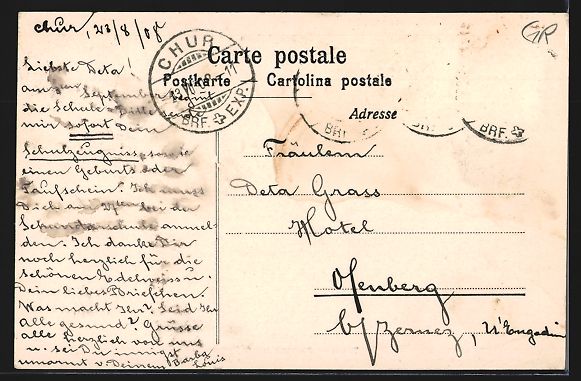 Chur, 23/8/08
Carte postale
Postkarte Cartolina postale
Adresse
CHUR
BRF. EXP.
BRF.
BRF.
GR
Liebste Deta!
am September
die Schule. Bitte
mir sofort Dein
Schulzeugniss, sowie
einen Geburts oder
Taufschein. Ich muss
Dich am bei der
Sekundarschule anmel-
den. Ich danke Dir
noch herzlich für die
schönen Edelweiss u.
Dein liebes Briefchen.
Was macht Ihr? Seid Ihr
alle gesund? Grüsse
alle herzlich von uns
u. sei Du innigst
umarmt v. Deinem Barba
Louis
Fräulein
Deta Grass
Hotel
Ofenberg
b/ Zernez, U'Engadin